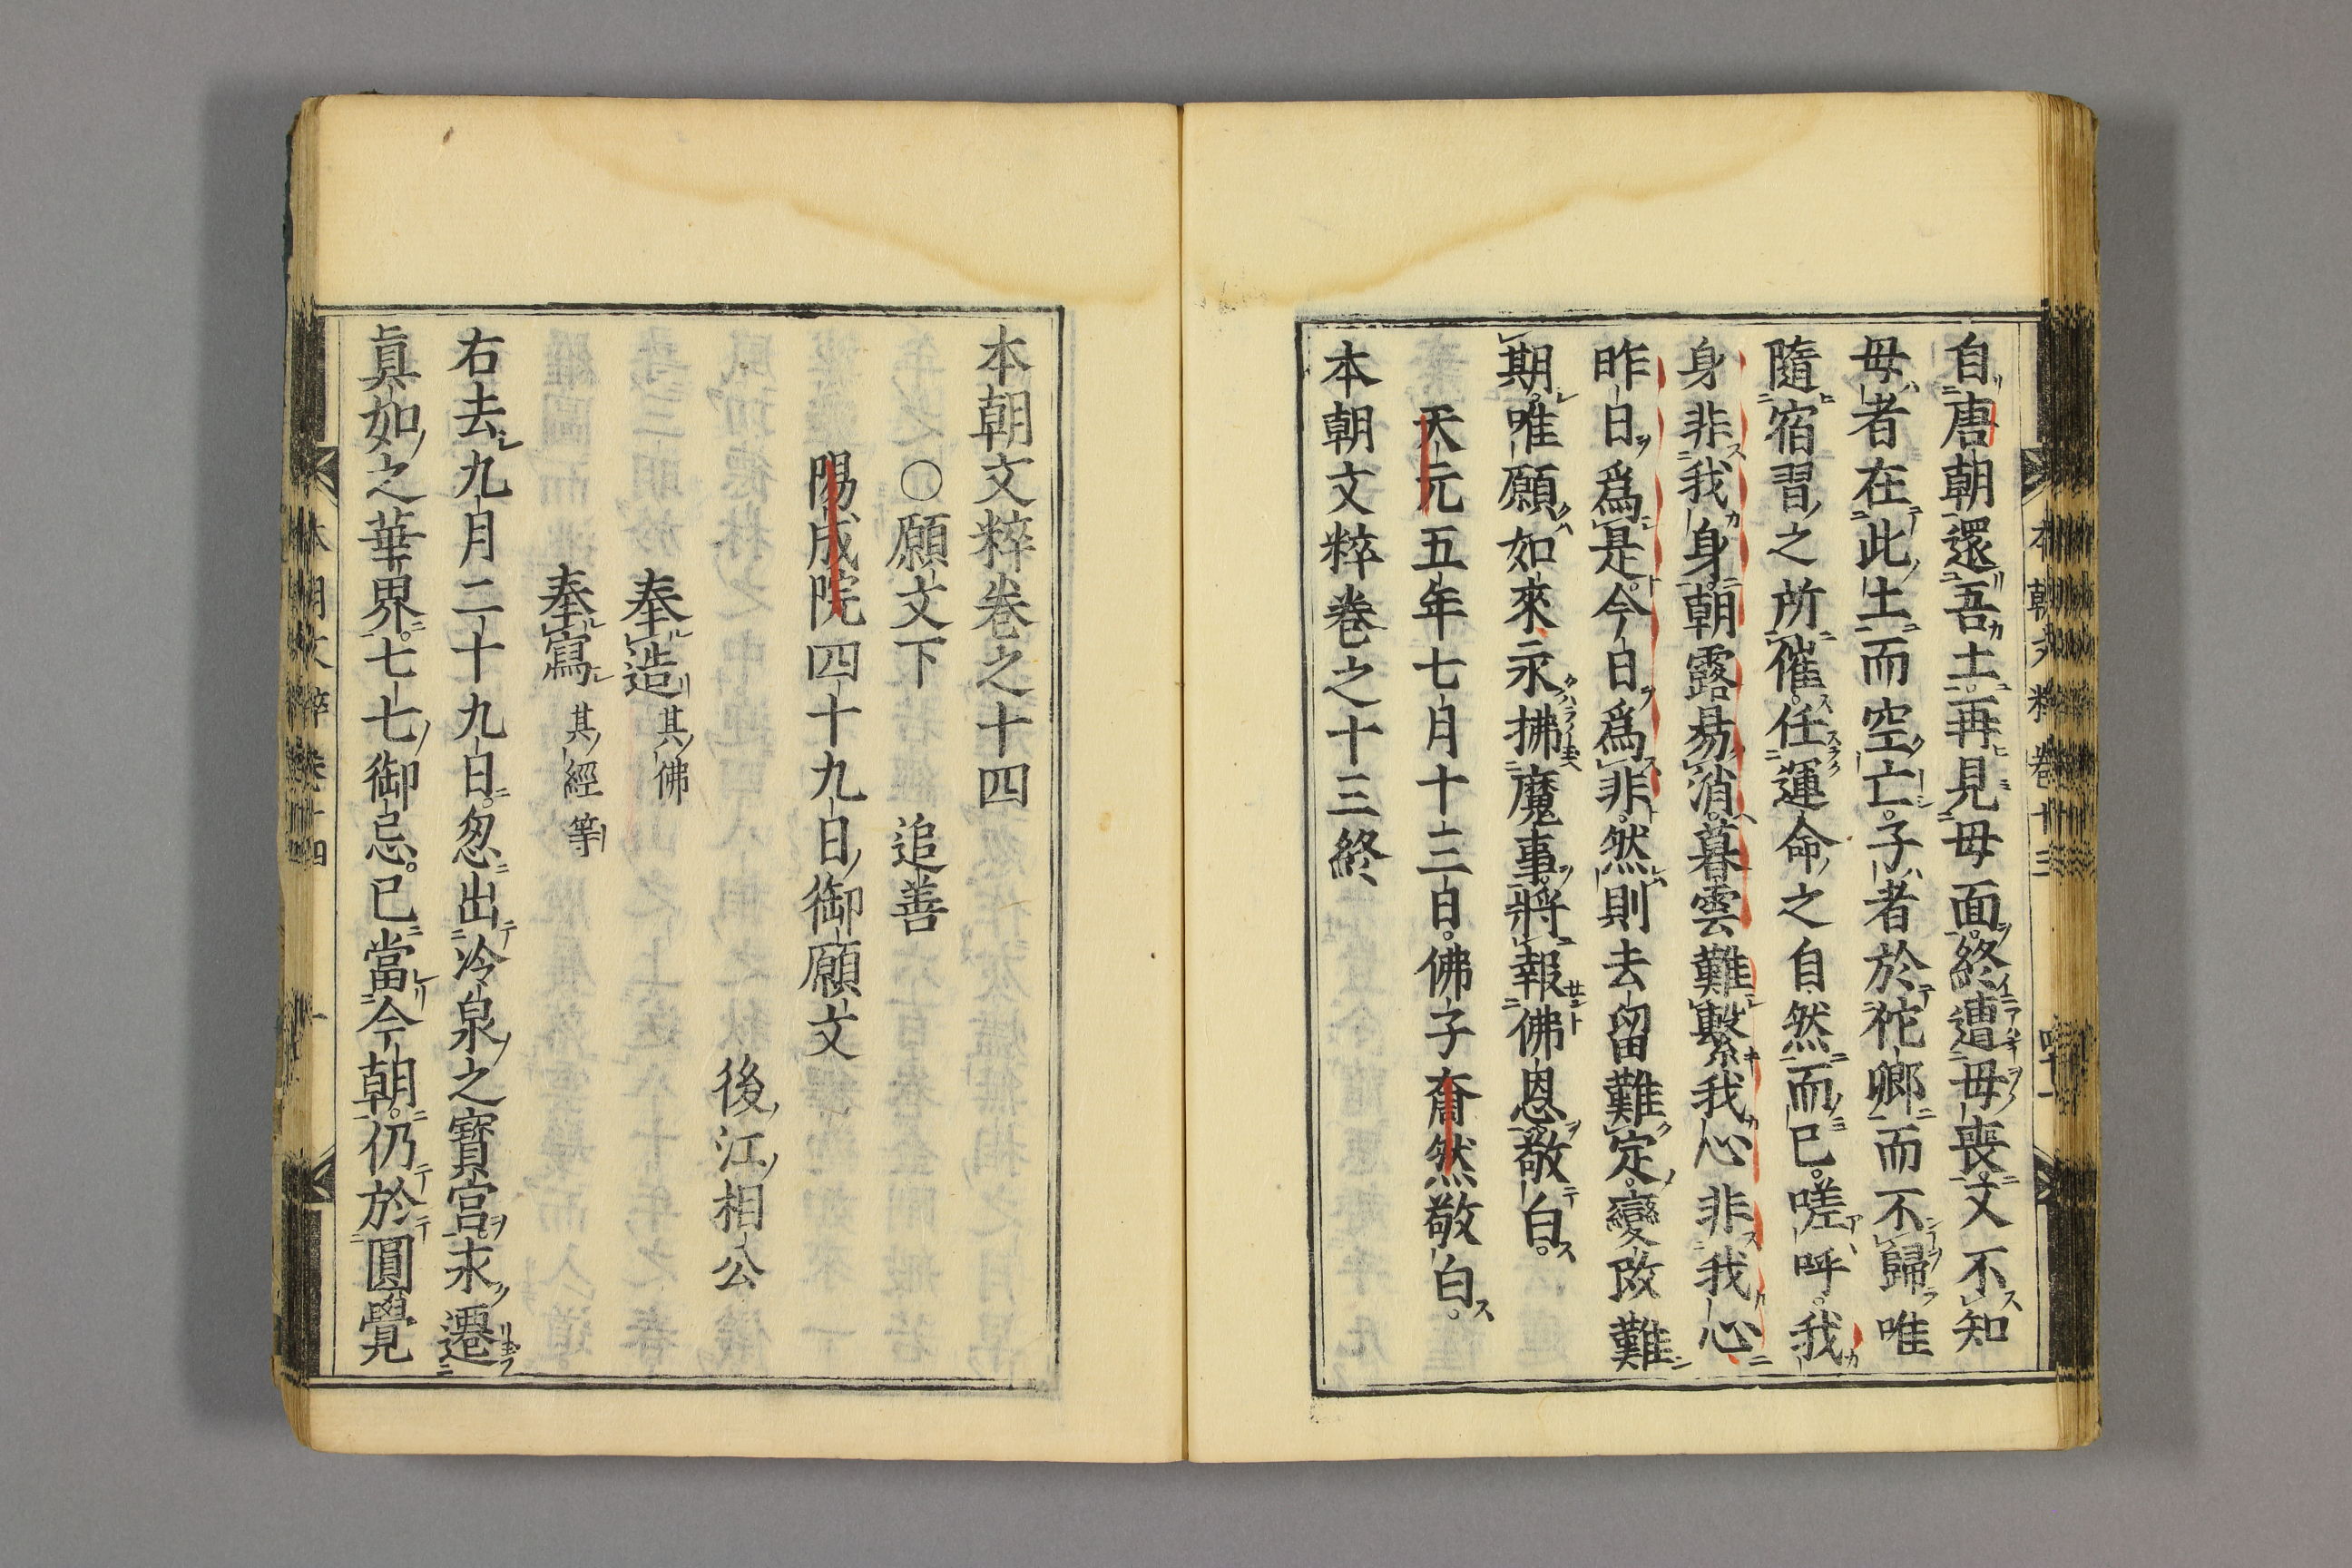 自唐朝還吾土再見母面終遭母喪又不知
母者在此土而空亡子者於佗鄉而不歸唯
隨宿習之所催任運命之自然而已嗟呼我
身非我身朝露易消暮雲難繫我心非我心
昨日爲是今日爲非然則去留難定變改難
期唯願如來永拂魔事將報佛恩敬白
天元五年七月十三日佛子奝然敬白
本朝文粹卷之十三終
本朝文粹卷之十四
○願文下 追善
陽成院四十九日御願文
後江相公
奉造其佛
奉寫其經等
右去九月二十九日忽出冷泉之寶宮永遷
眞如之華界七七御忌已當今朝仍於圓覺
本朝文粹卷十四 一